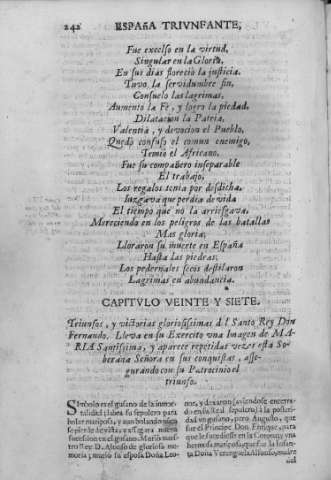 242 ESPAñA TRIVNFANTE,
Fue excelso en la virtud,
Singular en la Gloria.
En sus dias florecio la justicia.
Tuvo la servidumbre fin,
Consuelo las lagrimas,
Aumento la Fè, y logro la piedad.
Dilatacion la Patria.
Valentia, y devocion el Pueblo,
Quedò confuso el comun enemigo,
Temio el Africano.
Fue su compañero inseparable
El trabajo,
Los regalos tenia por desdicha.
Iuzgava que perdia de vida
El tiempo que no la arriesgava.
Mereciendo en los peligros de las batallas
Mas gloria,
Lloraron su muerte en España
Hasta las piedras,
Los pedernales secos destilaron
Lagrimas en abundancia.
CAPITVLO VEINTE Y SIETE.
Triunfos, y victorias gloriosissimas del Santo Rey Don
Fernando. Lleva en su Exercito una Imagen de MA-
RIA Santissima, y aparece repetidas vezes esta So-
berana Señora en sus conquistas, asse-
gurando con su Patrocinio el
triunfo.
Simbolo es el gusano de la inmor-
talidad; labra su sepulcro para
bolar mariposa, y aun bolando
se pierde de vista, y assegura nueva
sucession en el gusano. Muriò nuestro
Rey D. Alonso de gloriosa me-
moria; muriò su esposa Doña Leo-
nor, y dexaron (aviendose encerra-
do en su Real sepulcro) à la posteri-
dad un gusano, pero Augusto, que
fue el Principe Don Enrique, para
que le sucediesse en la Corona, y una
hermosa mariposa, que fue la Infan-
ta Doña Verenguela Alfonso, madre